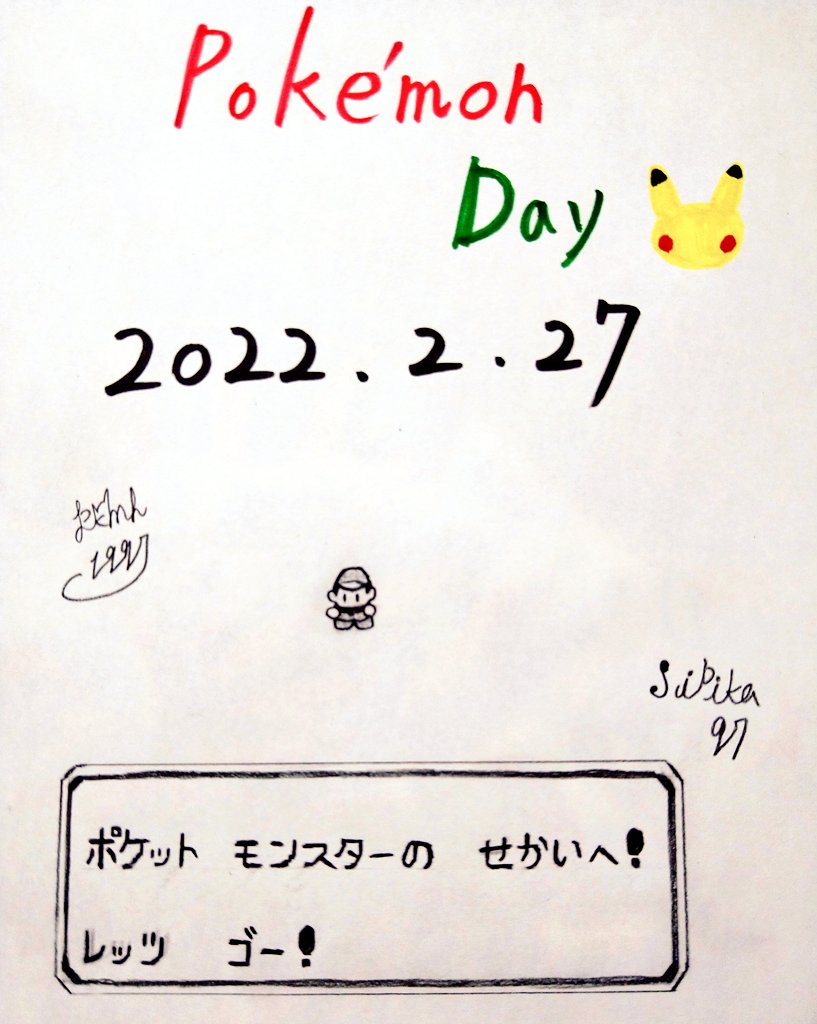 Pokémon
Day
2022.2.27
1997
Suipika
97
ポケット モンスターの せかいへ!
レッツ ゴー!